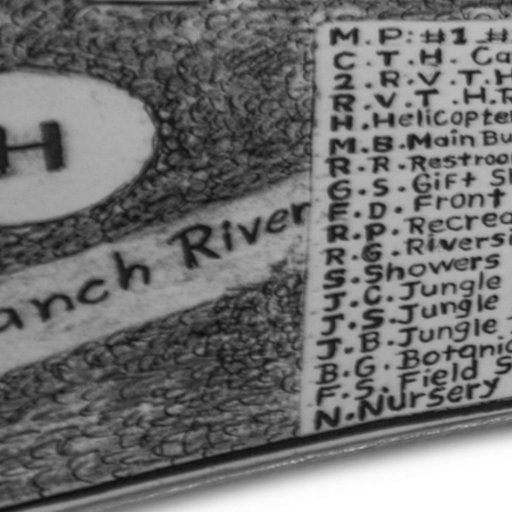 H
anch River
M.P. #1 #
C.T.H. Ca
2.R.V.T.H
R.V.T.H.R
H.Helicopter
M.B.Main Bu
R.R.Restroo
G.S.Gift S
F.D.Front
R.P.Recrea
R.G.Riversi
S.Showers
J.C.Jungle
J.S.Jungle
J.B.Jungle
B.G.Botanic
F.S.Field S
N.Nursery